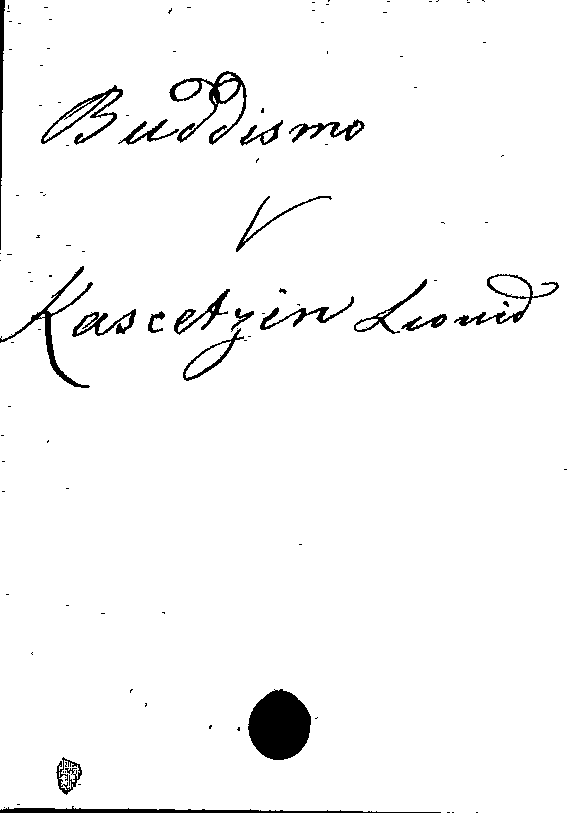 Buddismo
V
Kascetzin Leonid